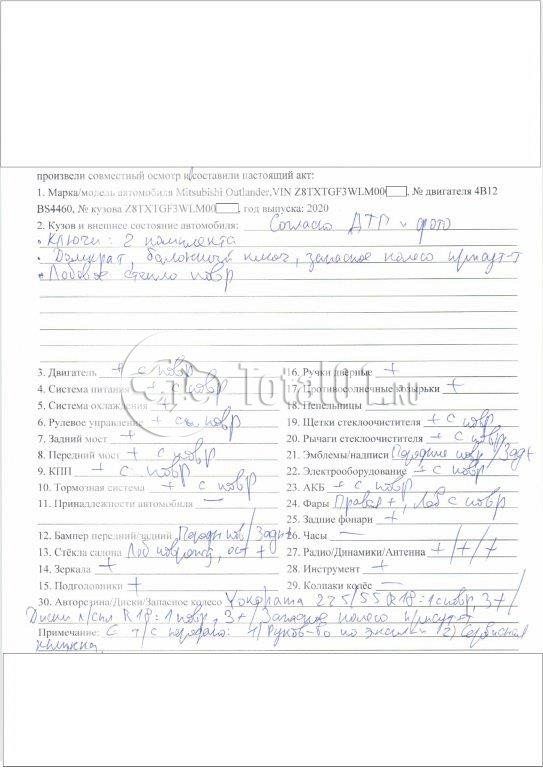 произвели совместный осмотр и составили настоящий акт:
1. Марка/модель автомобиля Mitsubishi Outlander,VIN Z8TXTGF3WLM00 , № двигателя 4B12
BS4460, № кузова Z8TXTGF3WLM00 , год выпуска: 2020
2. Кузов и внешнее состояние автомобиля: Согласно ДТП и фото
• Ключи: 2 комплекта
• Домкрат, баллонный ключ, запасное колесо присут-т
• Лобовое стекло повр
3. Двигатель + с повр
16. Ручки дверные +
4. Система питания + с повр
17. Противосолнечные козырьки +
5. Система охлаждения +
18. Пепельницы
6. Рулевое управление + с повр
19. Щетки стеклоочистителя + с повр
7. Задний мост +
20. Рычаги стеклоочистителя + с повр
8. Передний мост + с повр
21. Эмблемы/надписи Передние повр/Задн+
9. КПП + с повр
22. Электрооборудование + с повр
10. Тормозная система + с повр
23. АКБ + с повр
11. Принадлежности автомобиля —
24. Фары Правая +, Лев с повр
25. Задние фонари +
12. Бампер передний/задний Передн повр/Задн+
26. Часы —
13. Стёкла салона Лоб повр, ост +
27. Радио/Динамики/Антенна +/+/+
14. Зеркала +
28. Инструмент +
15. Подголовники +
29. Колпаки колёс —
30. Авторезина/Диски/Запасное колесо Yokohama 225/55 R18: 1 с повр, 3+/
Диски R18: 1 повр, 3+/ Запасное колесо присут-т
Примечание: С т/с передано: 1) Руков-во по эксплуат 2) Сервисная
книжка.
TOTAL01.RU